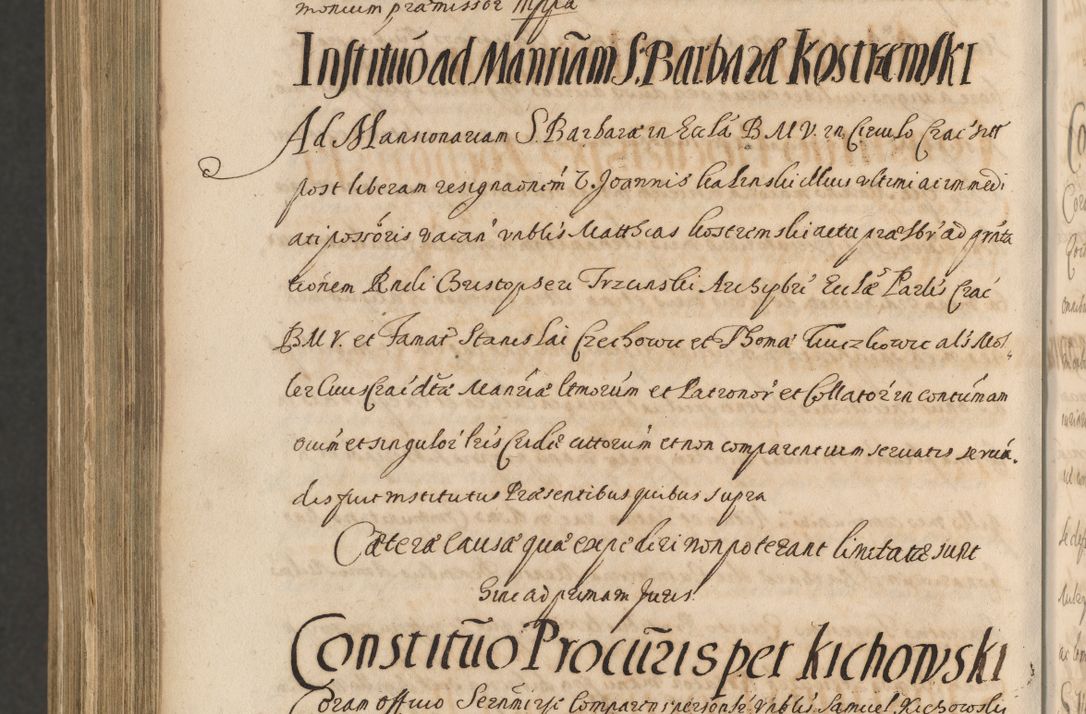 monium, præmissor nppa
Institūō ad Manriām S. Barbaræ Kostrzemski
Ad Mansionariam S. Barbaræ in Ecclā B. M. V. in Circulo Crac sitt
post liberam resignaōnem V. Joannis Kalinski illius ultimi ac immedi
ati possōris vacan Vnblis Matthias Kostrzemski actu præsbr ad prnta
tiōnem Rndi Christopheri Trzcinski Archypbri Ecclæ Parlis Crac
B. M. V. et Famat Stanislai Czechowic et Thomæ Kuczkowic als Mos
ler Cuius Crac dctæ Manriæ ltmorūm et Patronor et Collator in contumam
ouim et singulor his Cridæ cittorum et non comparentium servatis servā
dis fuit institutus Præsentibus quibus supra
Cæteræ causæ quæ expediri non poterant limitatæ sunt
hinc ad primam Juris.
Constitūo Procūris per Kichowski
Coram officio Sermmirsi Comparens personlr Vnblis Samuel Kichowski